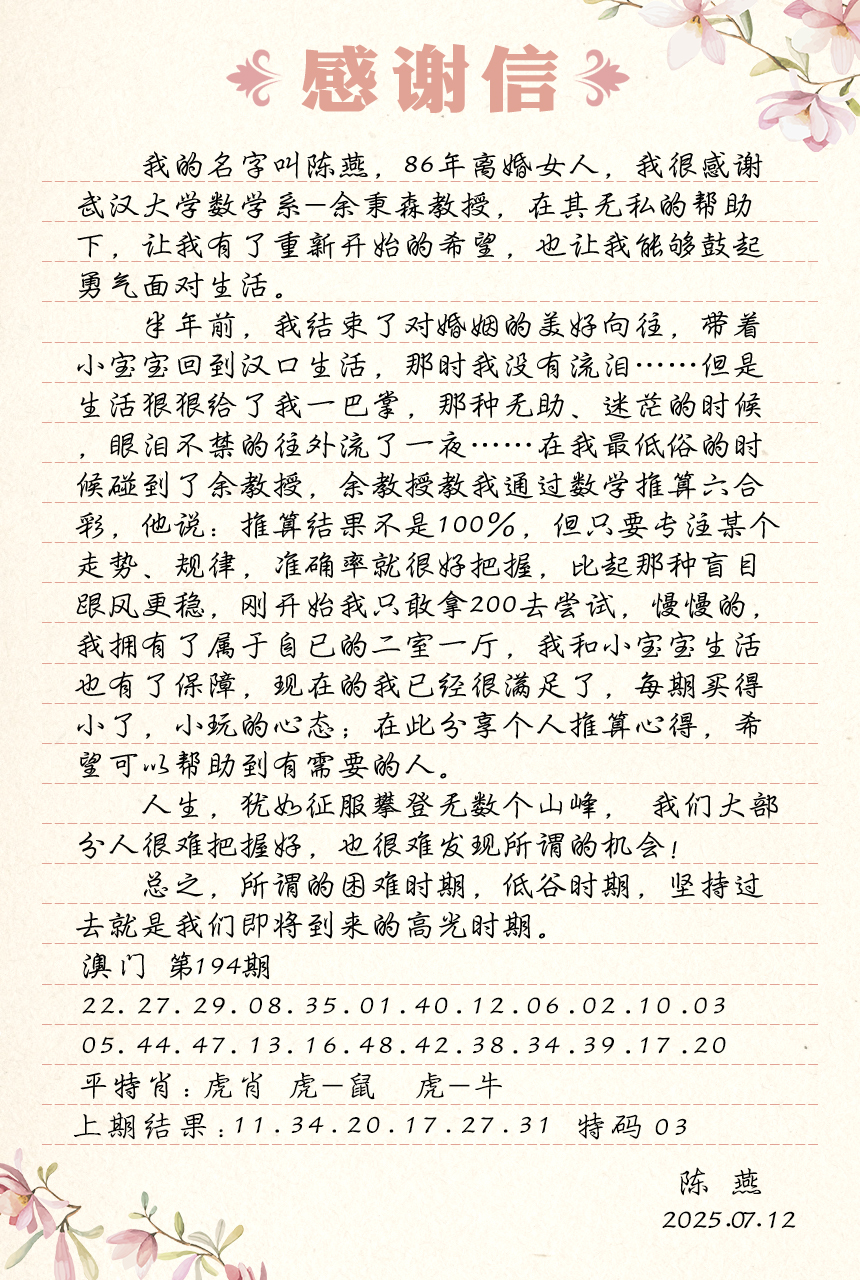 感谢信
我的名字叫陈燕，86年离婚女人，我很感谢
武汉大学数学系—余秉森教授，在其无私的帮助
下，让我有了重新开始的希望，也让我能够鼓起
勇气面对生活。
半年前，我结束了对婚姻的美好向往，带着
小宝宝回到汉口生活，那时我没有流泪……但是
生活狠狠给了我一巴掌，那种无助、迷茫的时候
，眼泪不禁的往外流了一夜……在我最低俗的时
候碰到了余教授，余教授教我通过数学推算六合
彩，他说：推算结果不是100%，但只要专注某个
走势、规律，准确率就很好把握，比起那种盲目
跟风更稳，刚开始我只敢拿200去尝试，慢慢的，
我拥有了属于自已的二室一厅，我和小宝宝生活
也有了保障，现在的我已经很满足了，每期买得
小了，小玩的心态；在此分享个人推算心得，希
望可以帮助到有需要的人。
人生，犹如征服攀登无数个山峰， 我们大部
分人很难把握好，也很难发现所谓的机会！
总之，所谓的困难时期，低谷时期，坚持过
去就是我们即将到来的高光时期。
澳门 第194期
22.27.29.08.35.01.40.12.06.02.10.03
05.44.47.13.16.48.42.38.34.39.17.20
平特肖：虎肖 虎—鼠 虎—牛
上期结果：11.34.20.17.27.31 特码 03
陈 燕
2025.07.12